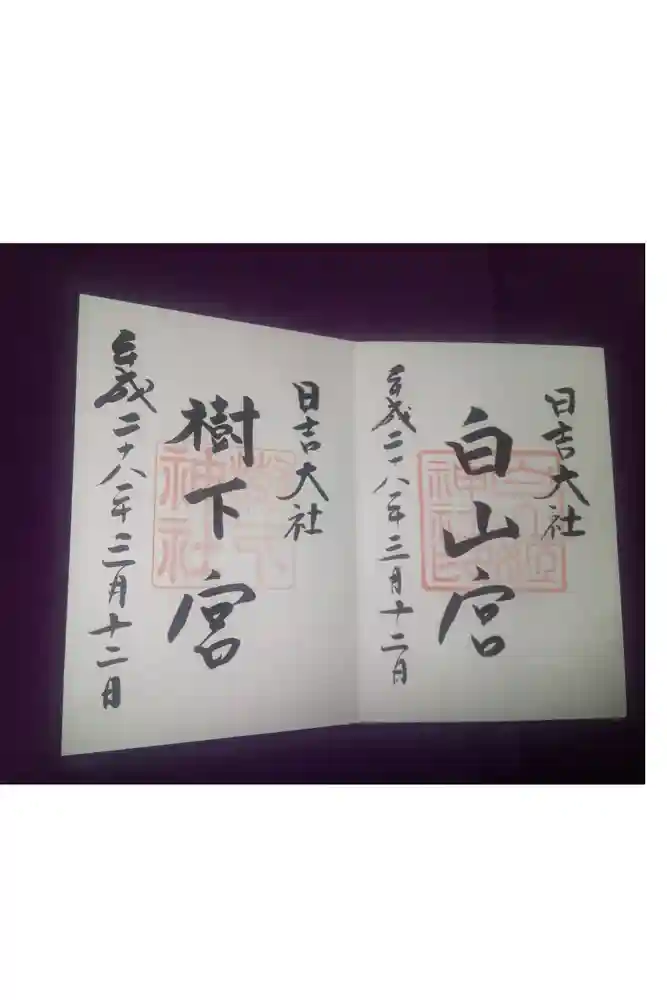 日吉大社
白山宮
平成二十八年三月十二日
日吉大社
樹下宮
平成二十八年三月十二日
樹下
神社